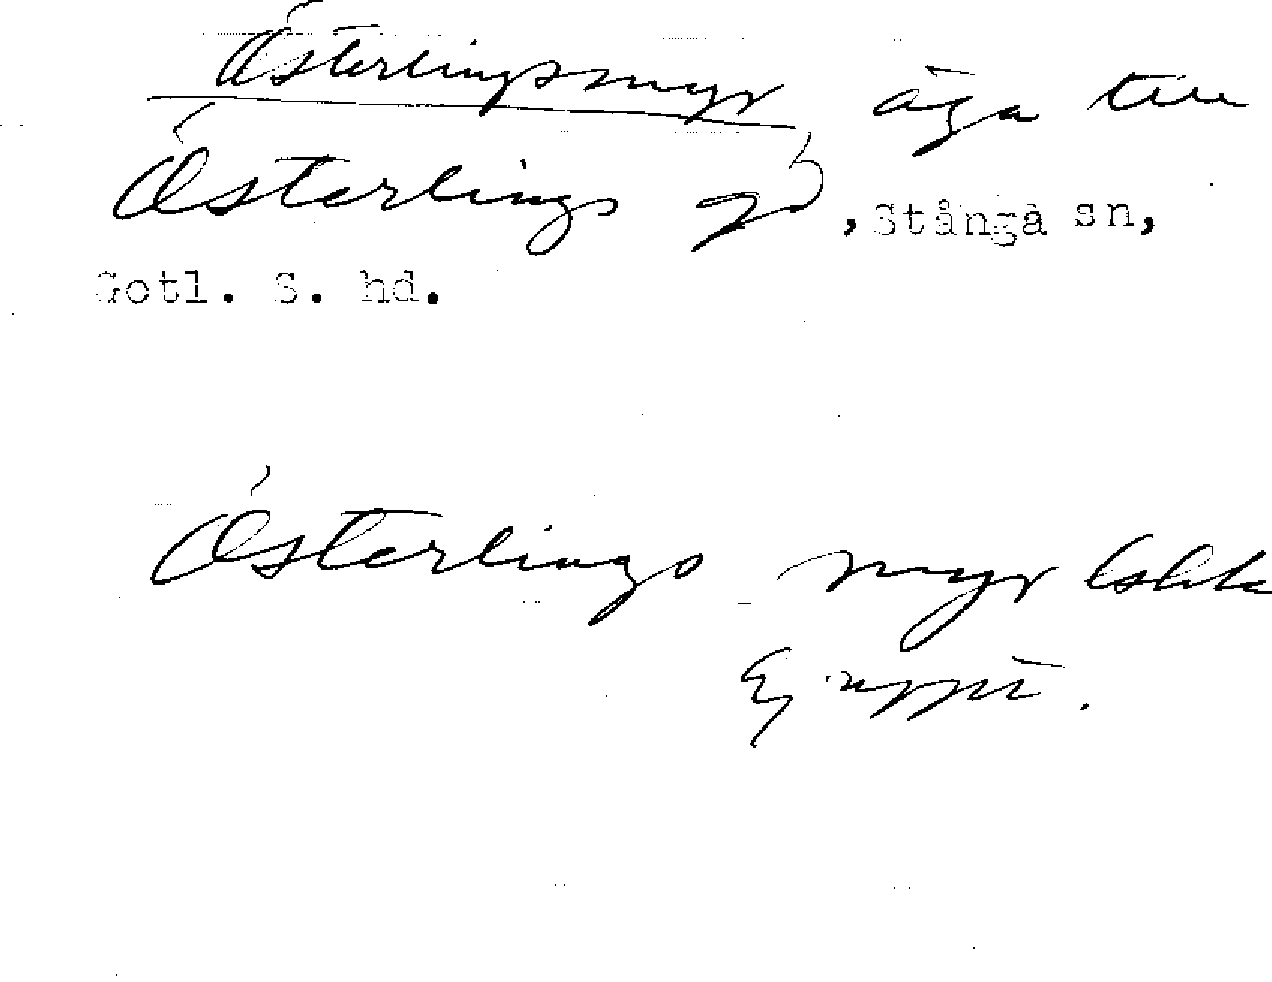 Österlingsmyr äga till
Österlings gd, Stånga sn,
Gotl. S. hd.
Österlings myr
Ej uppt.